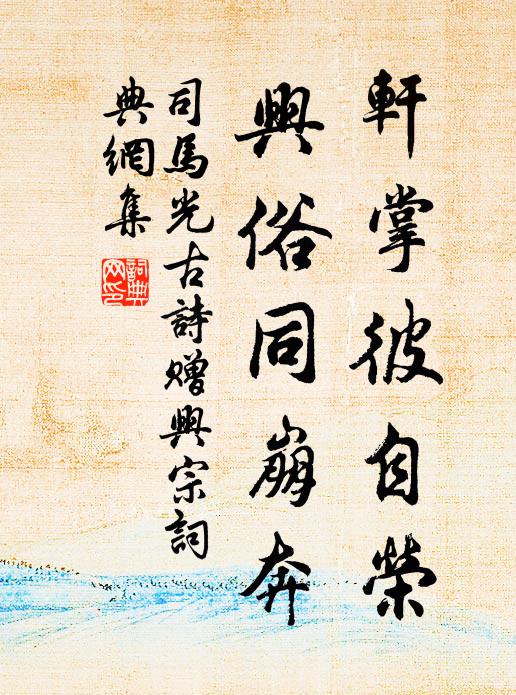 軒掌彼自榮
興俗同崩奔
司馬光古詩贈興宗詞
典網集
詞典
网印